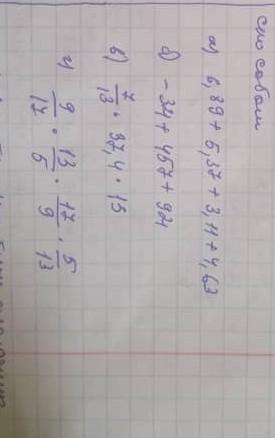 способом
а) 6,89 + 5,37 + 3,11 + 4,63
б) -34 + 457 + 94
в) 7/13 · 37,4 · 15
г) 9/17 · 13/5 · 17/9 · 5/13